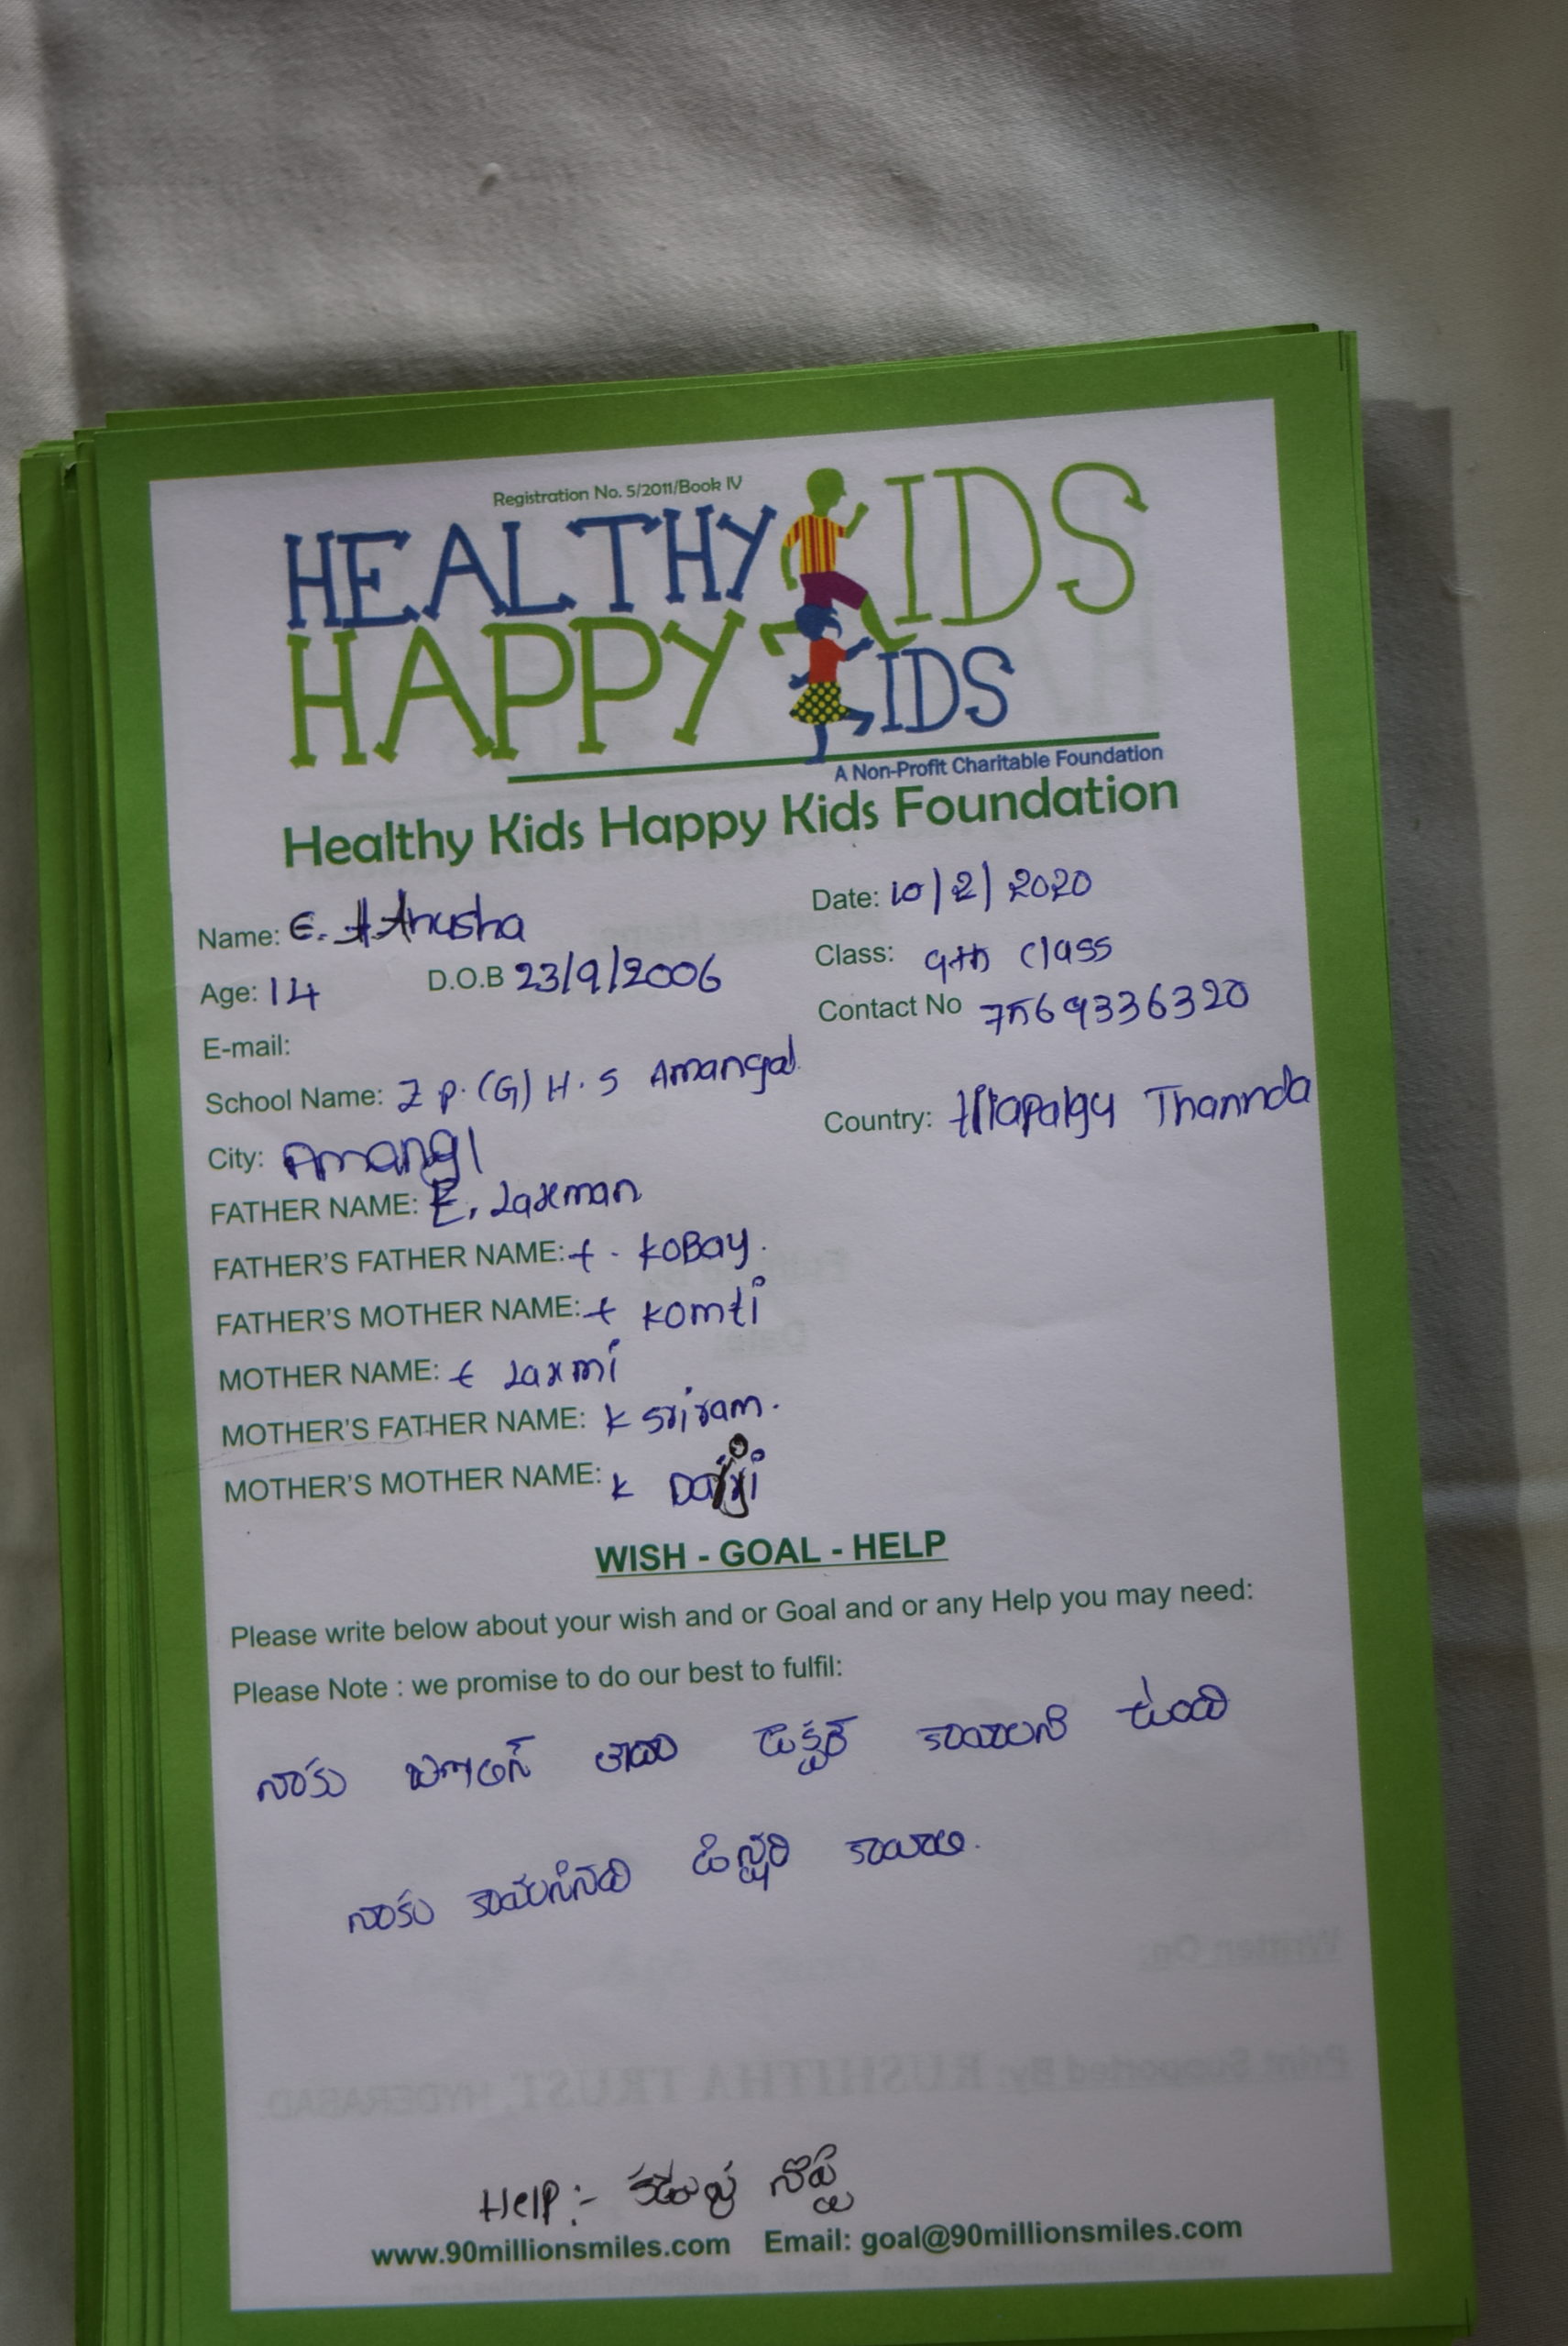 Registration No. 5/2011/Book IV
HEALTHY KIDS
HAPPY KIDS
A Non-Profit Charitable Foundation
Healthy Kids Happy Kids Foundation
Name: E. Anusha Date: 10/2/2020
Age: 14 D.O.B 23/9/2006 Class: 9th class
E-mail: Contact No 7569336320
School Name: Z p. (G) H. S Amangal
City: Amangl Country: Thannda
FATHER NAME: E. Laxman
FATHER'S FATHER NAME: KOBay.
FATHER'S MOTHER NAME: Komti
MOTHER NAME: E Laxmi
MOTHER'S FATHER NAME: K Sriram.
MOTHER'S MOTHER NAME: K
WISH - GOAL - HELP
Please write below about your wish and or Goal and or any Help you may need:
Please Note : we promise to do our best to fulfil:
నాకు ఉంది
నాకు
Help :- నొప్పి
www.90millionsmiles.com Email: goal@90millionsmiles.com